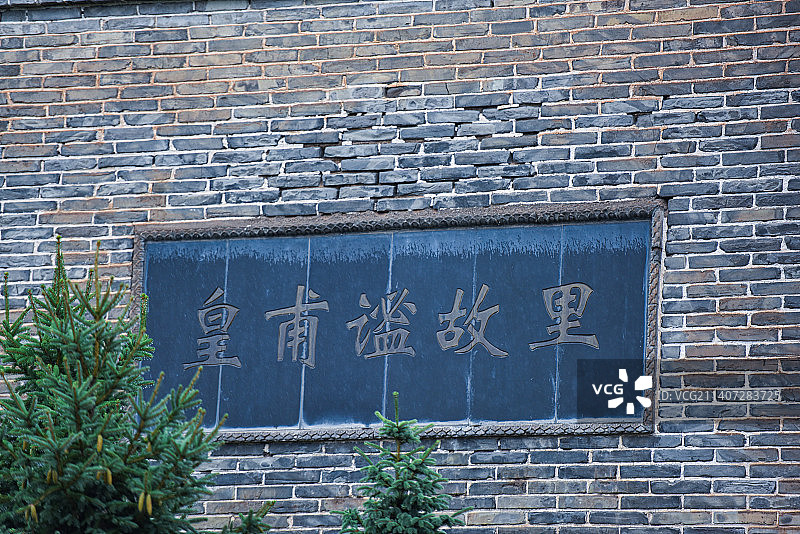 皇甫谧故里
VCG
ID:VCG211407283725